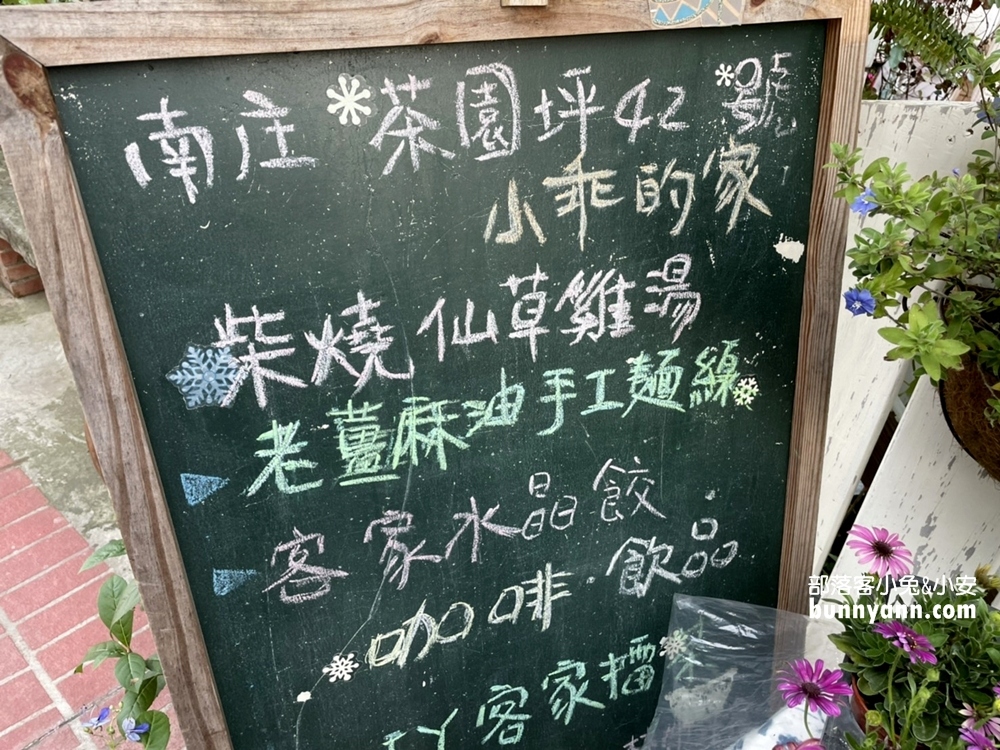 南庄 茶園坪42號
小乖的家
柴燒仙草雞湯
老薑麻油手工麵線
客家水晶餃
咖啡.飲品
客家擂
部落客小兔&小安
bunnyann.com